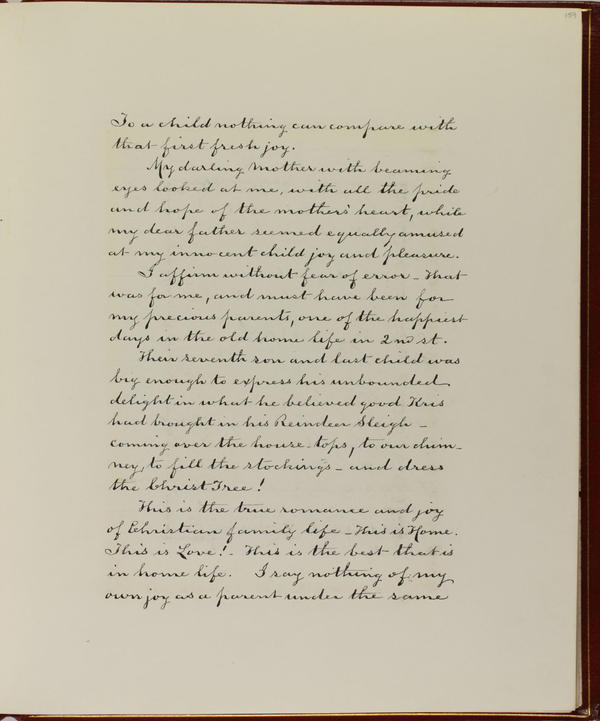 To a child nothing can compare with
that first fresh joy.
My darling Mother with beaming
eyes looked at me, with all the pride
and hope of the mothers' heart, while
my dear father seemed equally amused
at my innocent child joy and pleasure.
I affirm without fear of error - that
was for me, and must have been for
my precious parents, one of the happiest
days in the old home life in 2nd st.
Their seventh son and last child was
big enough to express his unbounded
delight in what he believed good Kris
had brought in his Reindeer Sleigh -
coming over the house-tops, to our chim-
ney, to fill the stockings - and dress
the Christ Tree!
This is the true romance and joy
of Christian family life - This is Home.
This is Love! - This is the best that is
in home life. I say nothing of my
own joy as a parent under the same